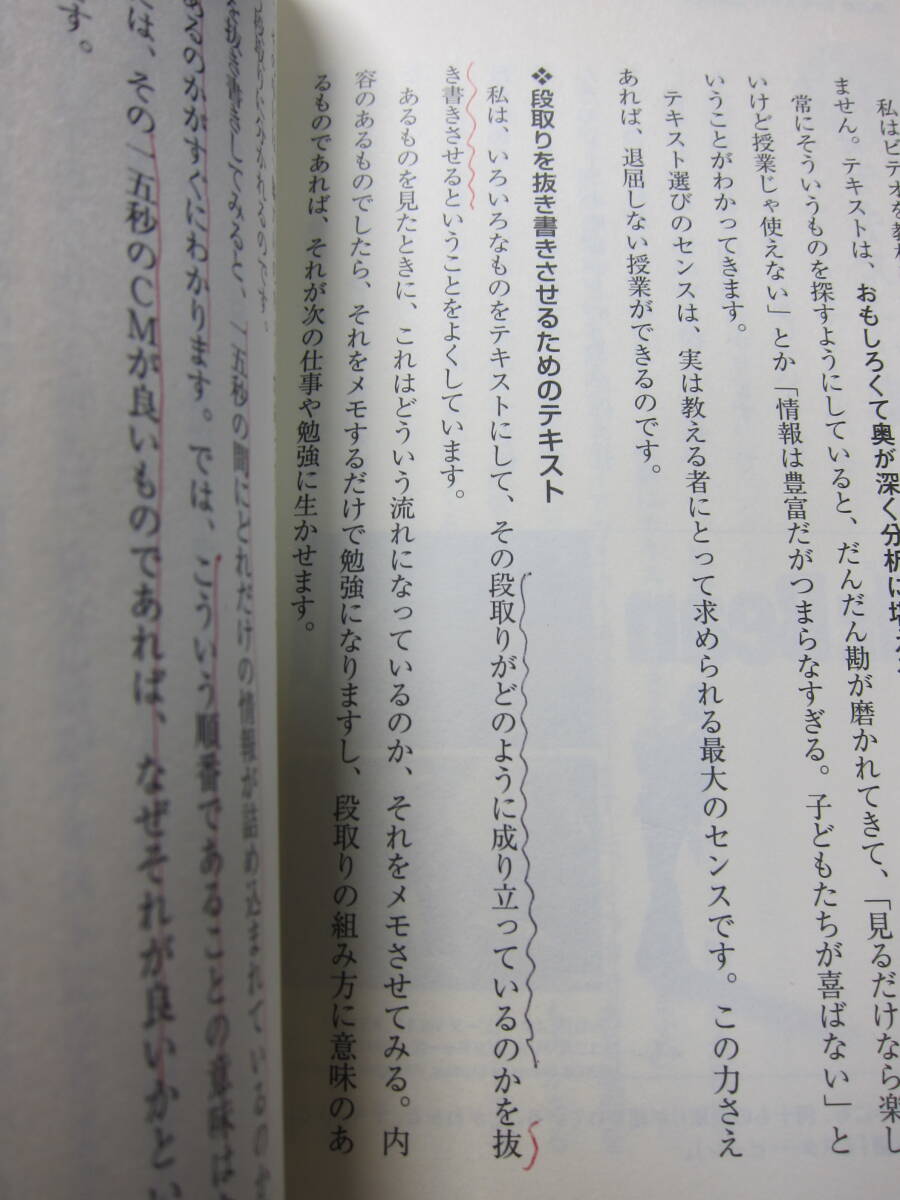 私はビデオを教
ません。テキストは、おもしろくて奥が深く分析に堪え
常にそういうものを探すようにしていると、だんだん勘が磨かれてきて、「見るだけなら楽し
いけど授業じゃ使えない」とか「情報は豊富だがつまらなすぎる。子どもたちが喜ばない」と
いうことがわかってきます。
テキスト選びのセンスは、実は教える者にとって求められる最大のセンスです。この力さえ
あれば、退屈しない授業ができるのです。
❖段取りを抜き書きさせるためのテキスト
私は、いろいろなものをテキストにして、その段取りがどのように成り立っているのかを抜
き書きさせるということをよくしています。
あるものを見たときに、これはどういう流れになっているのか、それをメモさせてみる。内
容のあるものでしたら、それをメモするだけで勉強になりますし、段取りの組み方に意味のあ
るものであれば、それが次の仕事や勉強に生かせます。
段取りに分かれるのです。
を抜き書きしてみると、一五秒の間にどれだけの情報が詰め込まれているのか
あるのかがすぐにわかります。では、こういう順番であることの意味は
は、その一五秒のCMが良いものであれば、なぜそれが良いかとい
す。